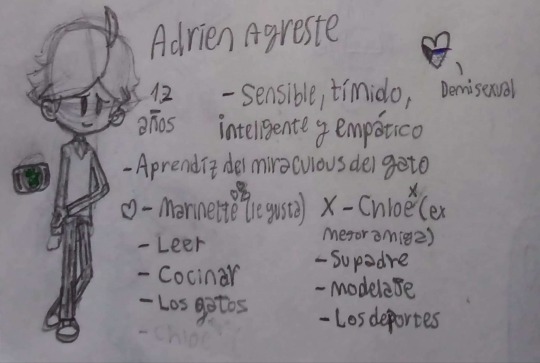 Adrien Agreste
Demisexual
12
años
- Sensible, tímido,
inteligente y empático
- Aprendíz del miraculous del gato
♡ - Marinette (le gusta)
- Leer
- Cocinar
- Los gatos
- Chloé
X - Chloé (ex
mejor amiga)
- Su padre
- Modelaje
- Los deportes